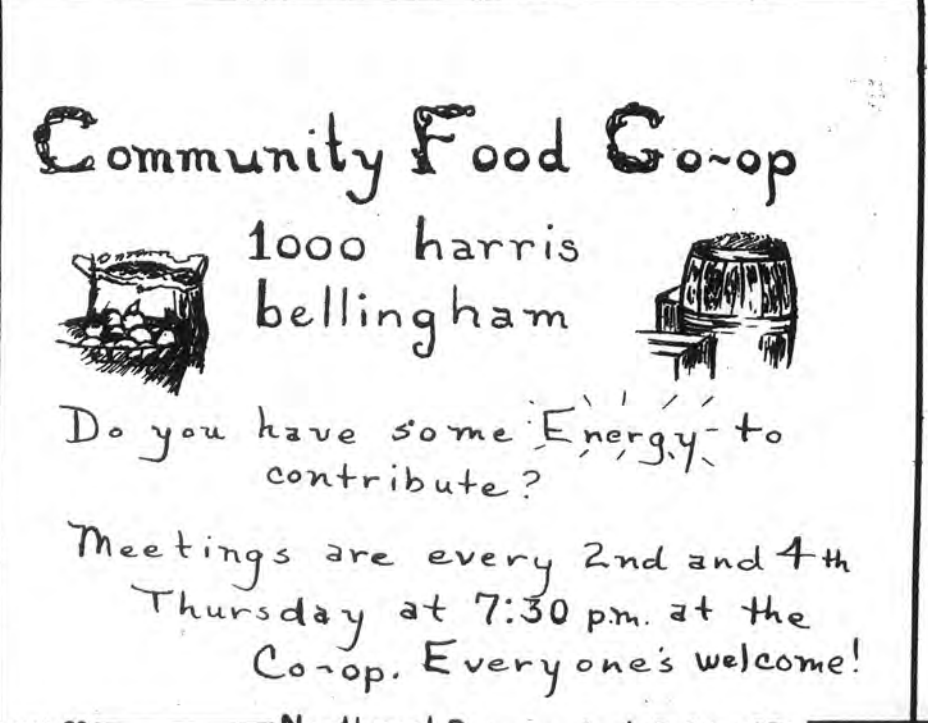 Community Food Co-op
1000 harris
bellingham
Do you have some Energy to
contribute?
Meetings are every 2nd and 4th
Thursday at 7:30 p.m. at the
Co-op. Everyone's welcome!